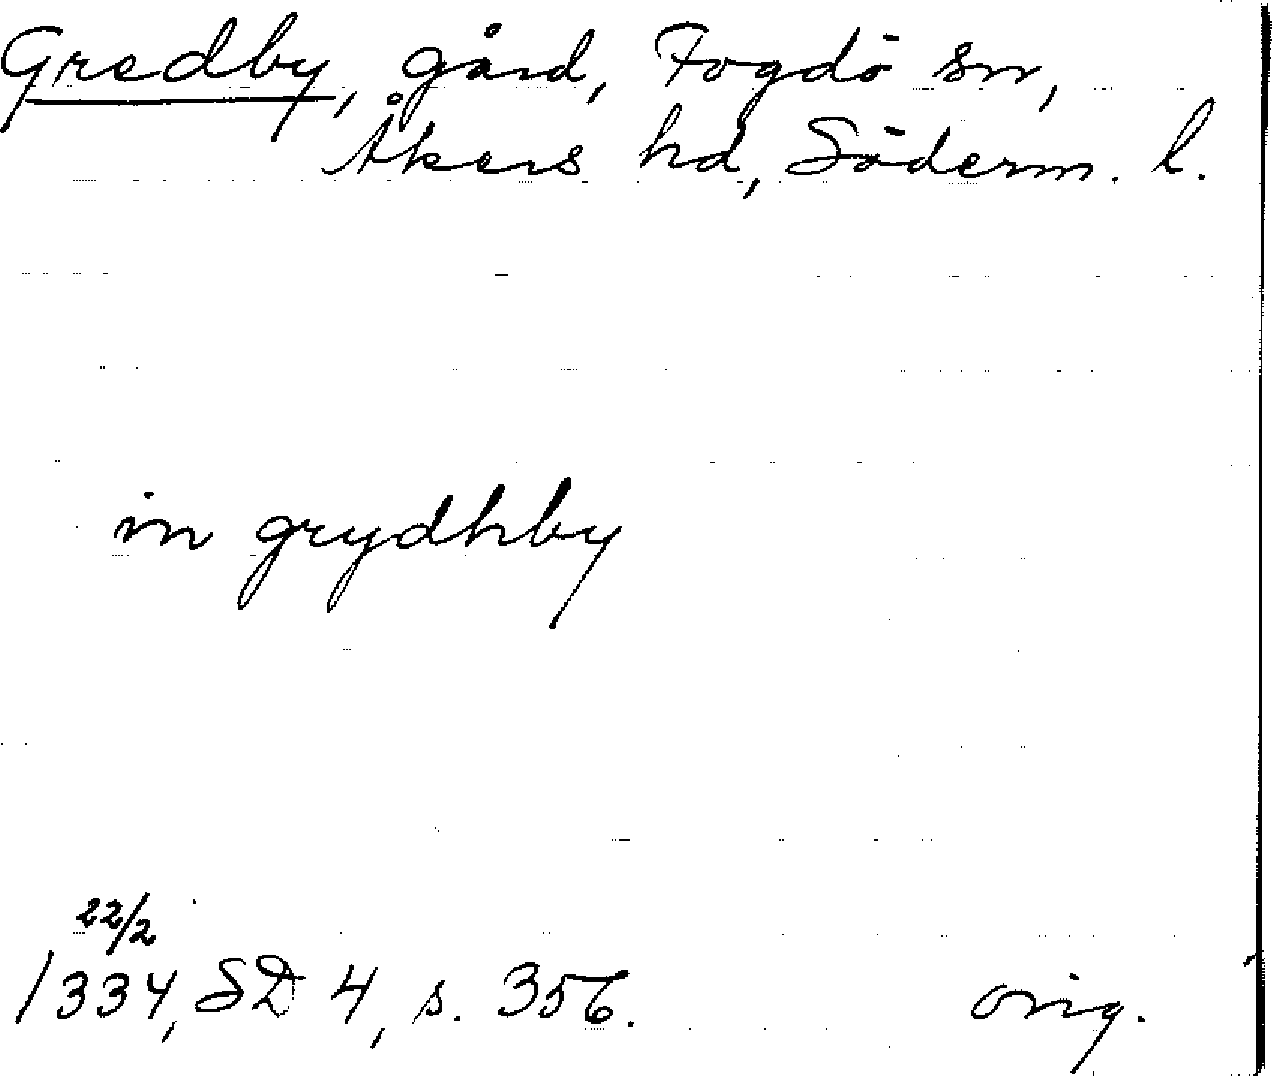 Gredby, gård, Fogdö sn,
Åkers hd, Söderm. l.
in grydhby
22/2
1334, SD 4, s. 356. orig.